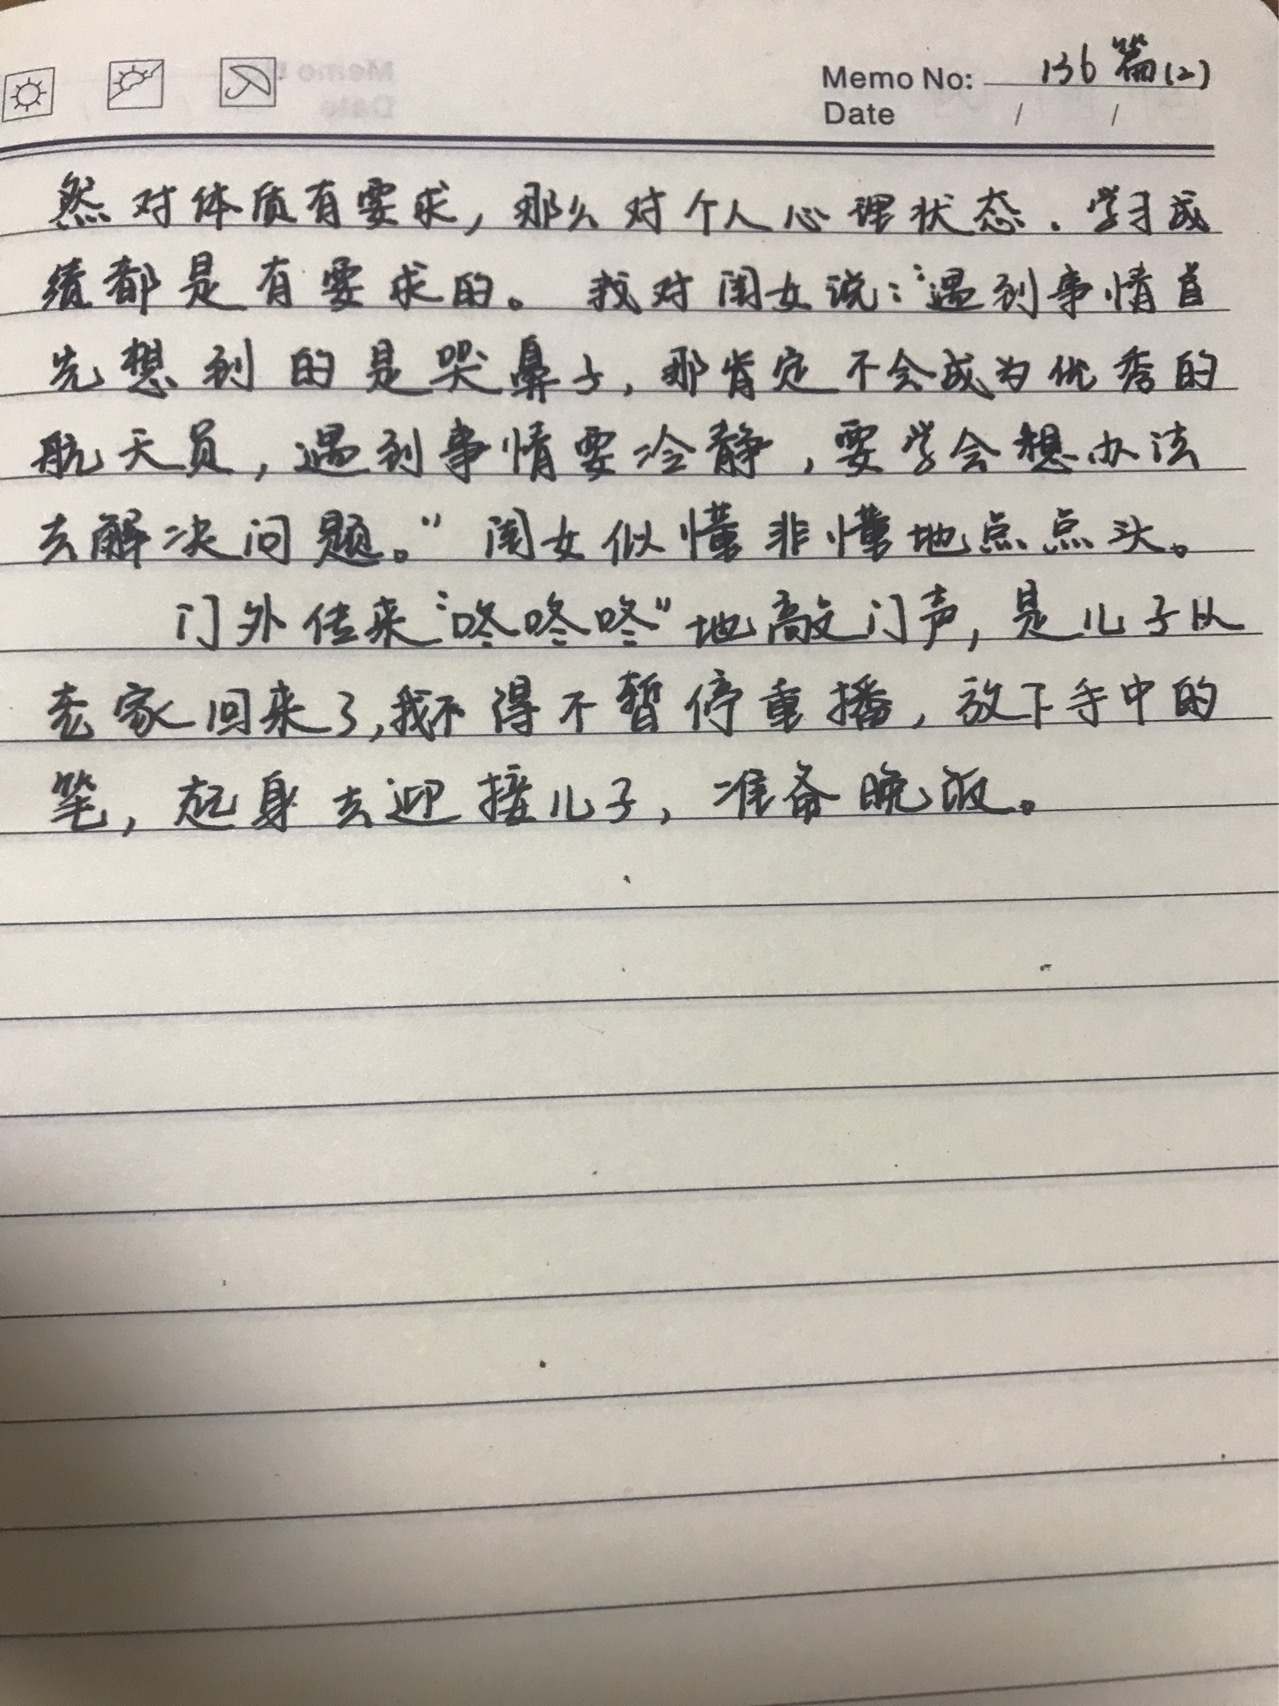 Memo No: 136篇(2)
Date / /
然对体质有要求，那么对个人心理状态、学习成
绩都是有要求的。我对闺女说：“遇到事情首
先想到的是哭鼻子，那肯定不会成为优秀的
航天员，遇到事情要冷静，要学会想办法
去解决问题。”闺女似懂非懂地点点头。
门外传来“咚咚咚”地敲门声，是儿子从
老家回来了，我不得不暂停重播，放下手中的
笔，起身去迎接儿子，准备晚饭。